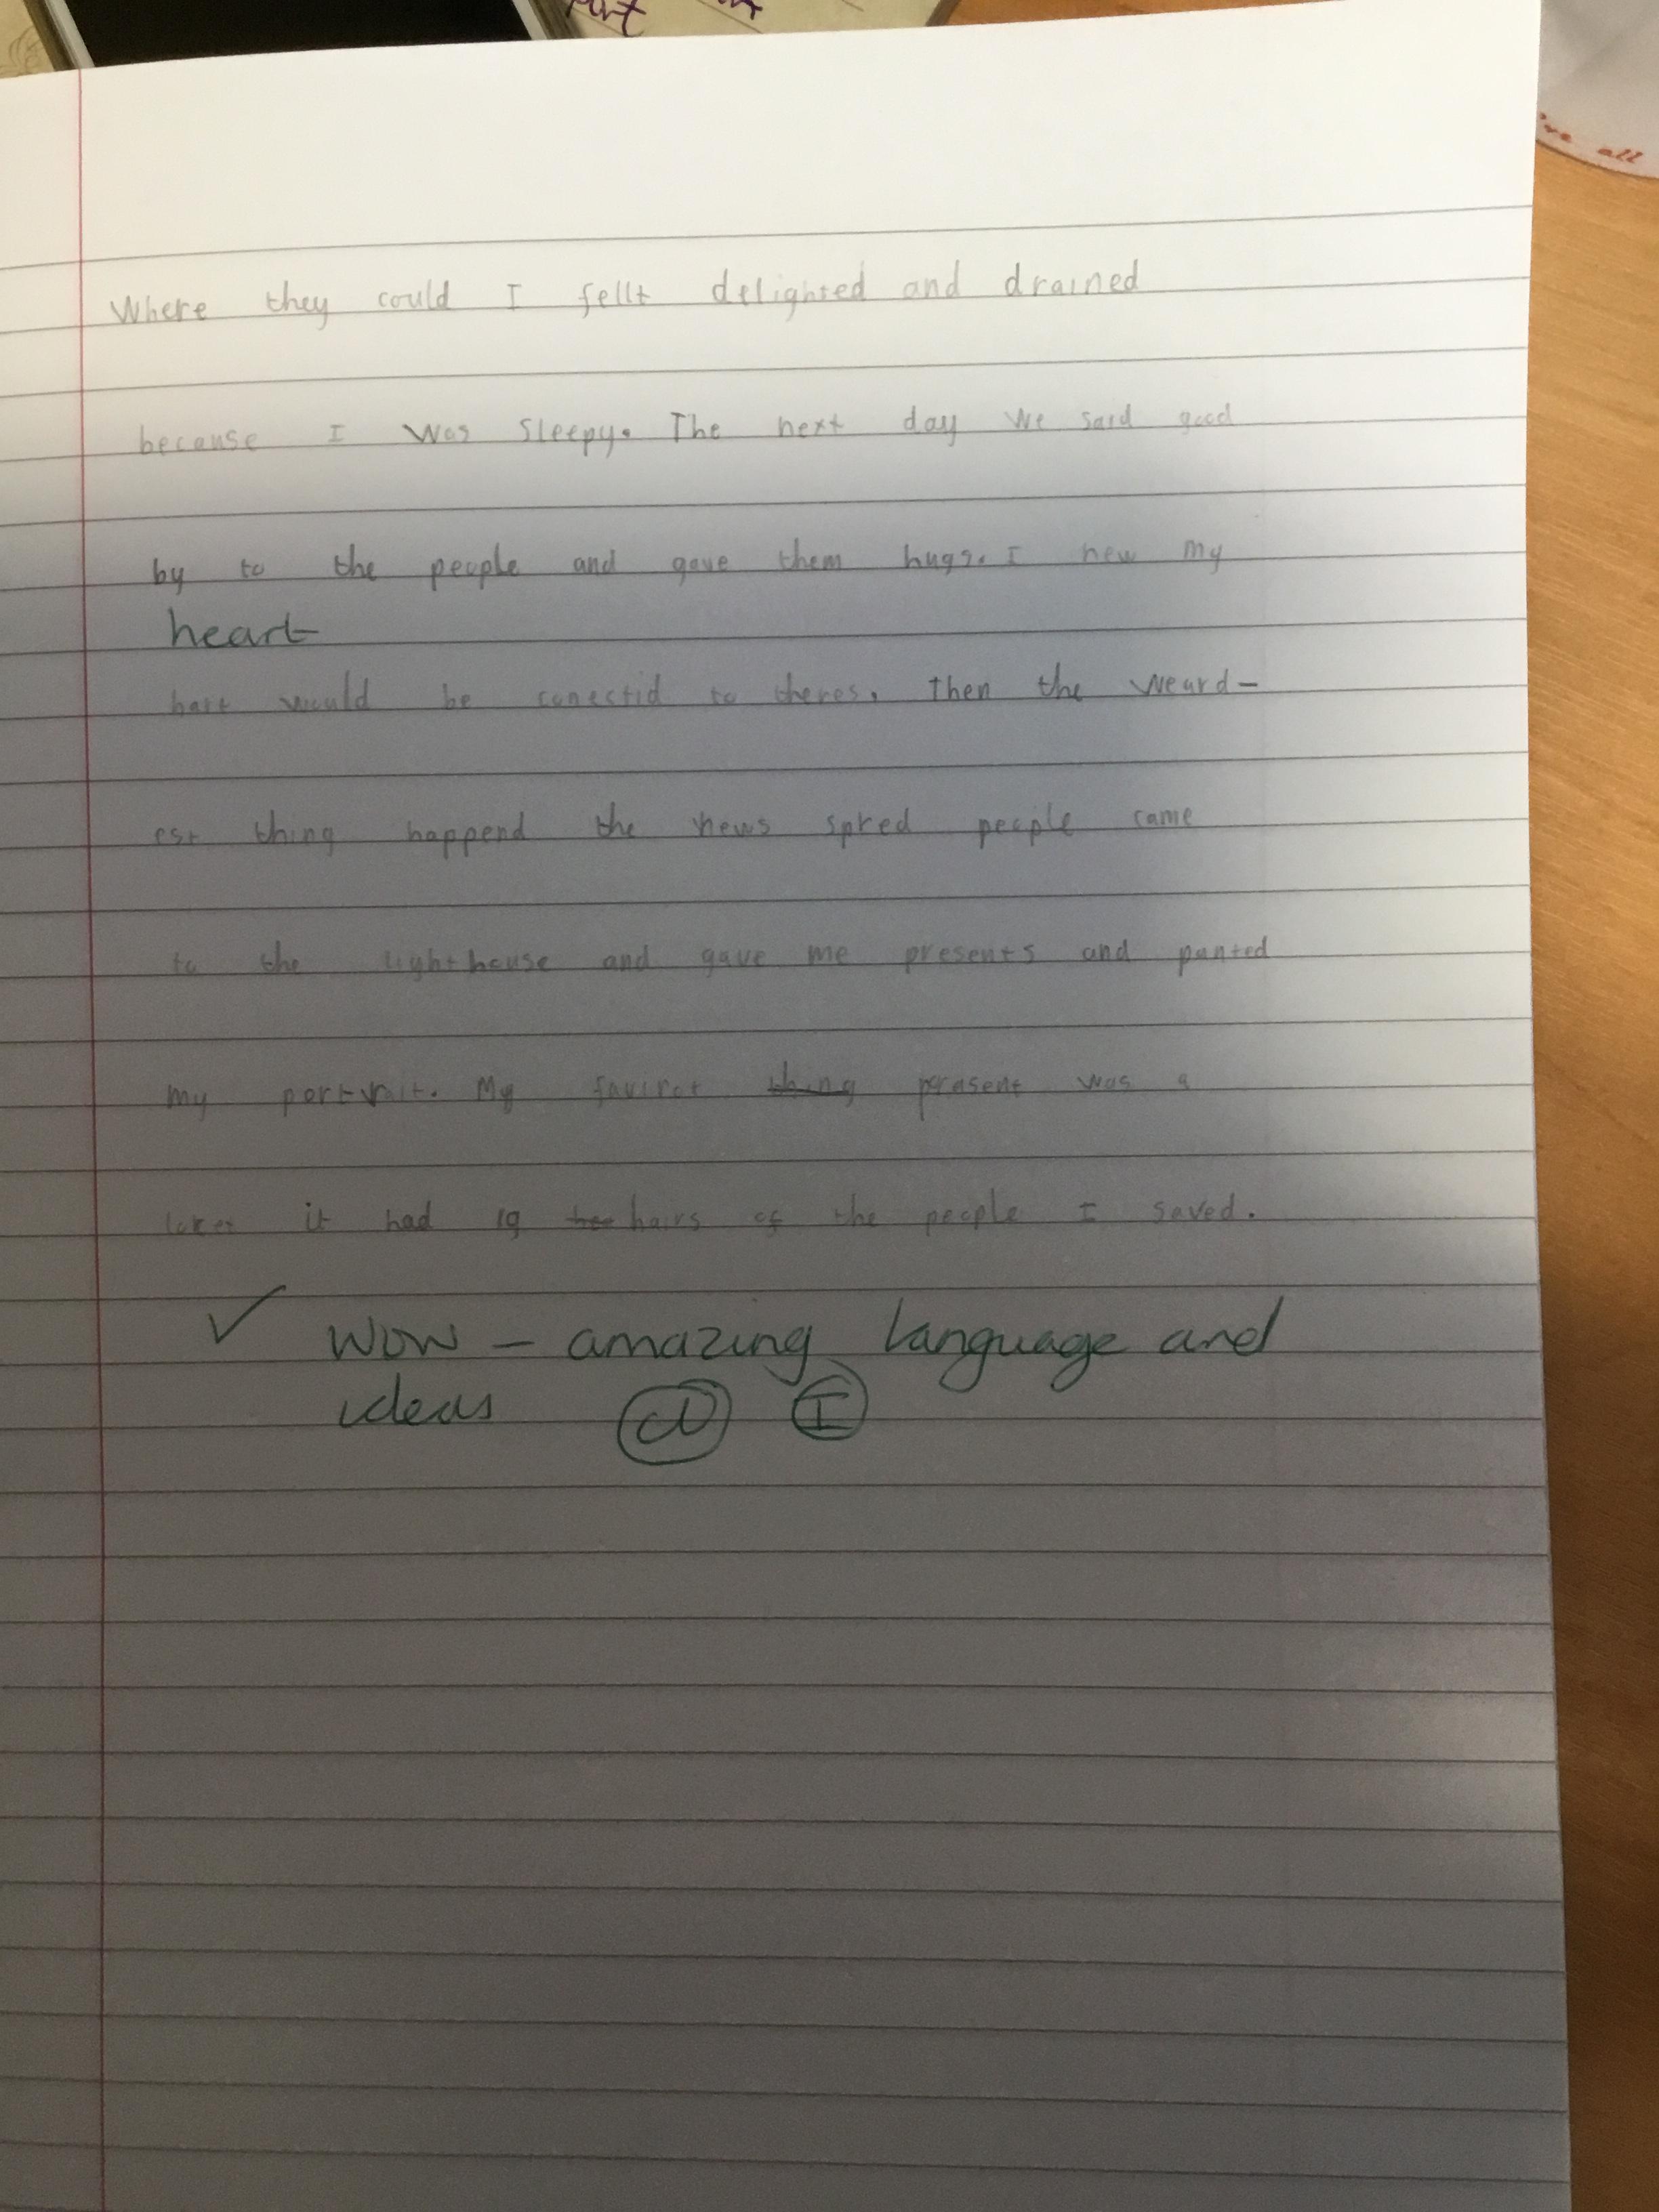 part
've all
Where they could I fellt delighted and drained
because I was sleepy. The next day we said good
by to the people and gave them hugs. I new my
heart
hart would be conectid to theres. Then the weard-
est thing happend the news spred people came
to the lighthouse and gave me presents and panted
my portrait. My favirot thing present was a
locket it had 19 hairs of the people I saved.
✓ Wow - amazing language and
ideas I